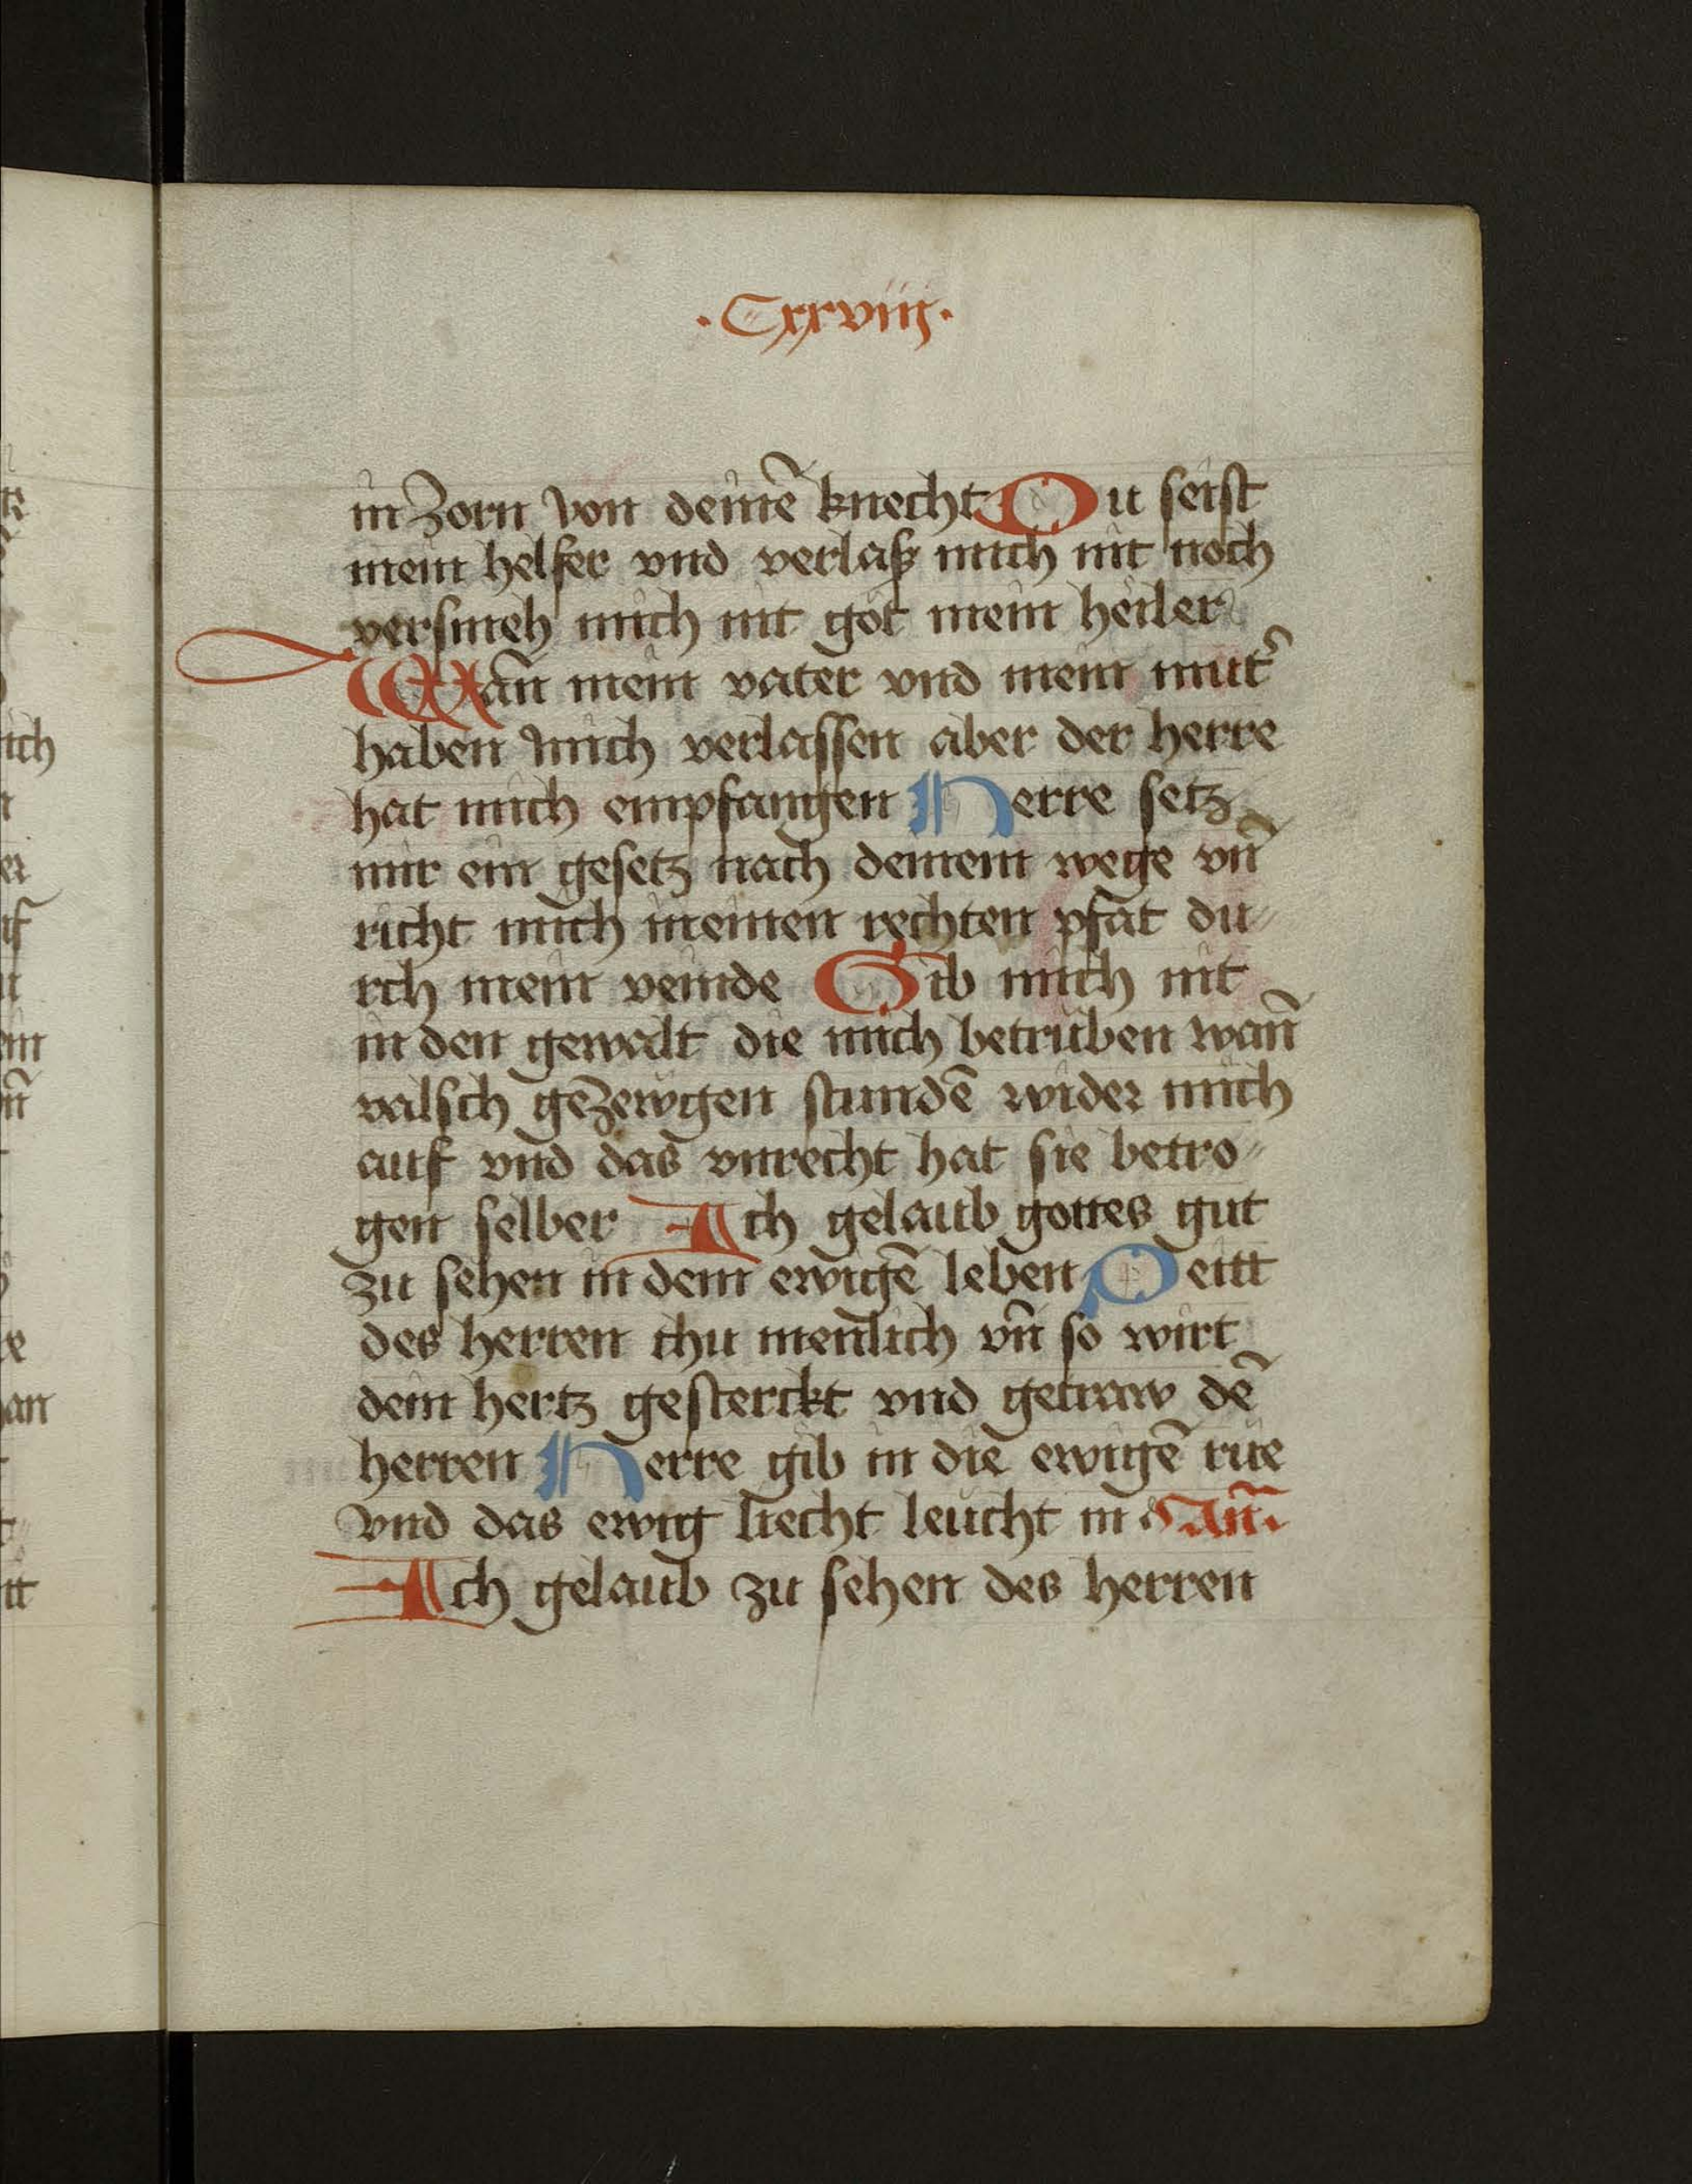 ·Cxxviiij·
in Zorn von deinē knecht Du seist
mein helfer vnd verlaß mich nit noch
versmeh mich nit got mein heiler
Wañ mein vater vnd mein mut͛
haben mich verlassen aber der herre
hat mich empfangen Herre setz
mir ein gesetz nach deinem wege vñ
richt mich in einen rechten pfat du〃
rch mein veinde Gib mich nit
in den gewalt die mich betruben wañ
valsch geZewgen stundē wider mich
auf vnd das vnrecht hat sie betro〃
gen selber Ich gelaub gottes gut
zu sehen in dem ewigē leben Peitt
des herren thu menlich vñ so wirt
dein hertz gesterckt vnd getraw dē
herren Herre gib in die ewigē rue
vnd das ewig liecht leucht in Añt
Ich gelaub zu sehen des herren